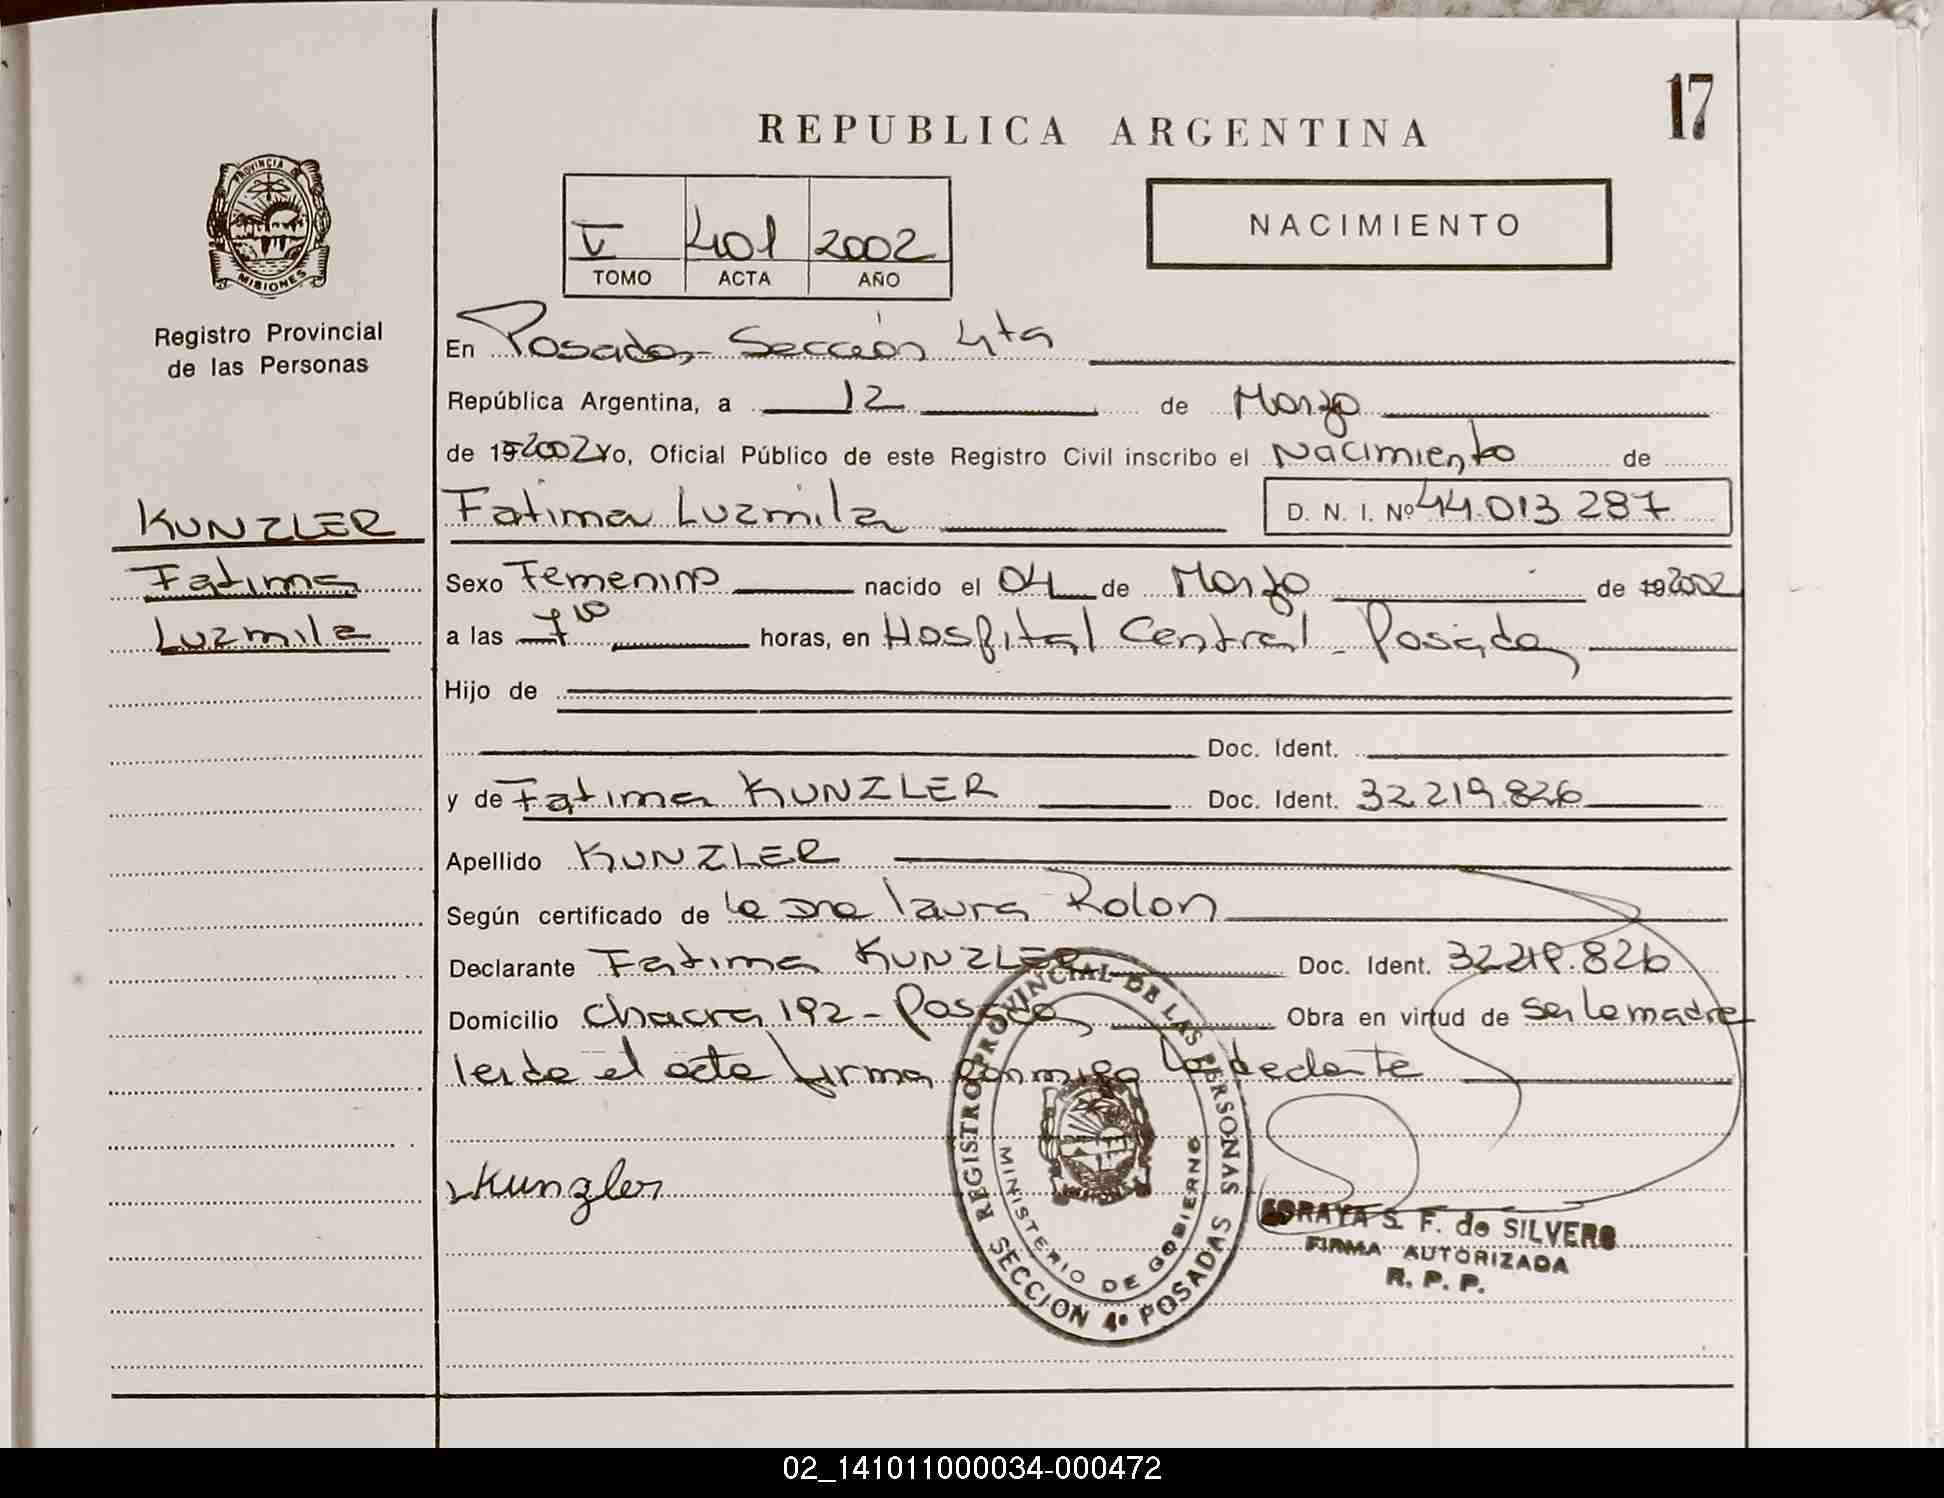 17
REPUBLICA ARGENTINA
PROVINCIA
MISIONES
Registro Provincial
de las Personas
V 401 2002
TOMO ACTA AÑO
NACIMIENTO
En Posadas - Sección 4ta
República Argentina, a 12 de Marzo
de 19 2002 Yo, Oficial Público de este Registro Civil inscribo el Nacimiento de
KUNZLER
Fatima
Luzmila
Fatima Luzmila D. N. I. Nº 44.013.287
Sexo Femenino nacido el 04 de Marzo de 19 2002
a las 7 10 horas, en Hospital Central - Posadas
Hijo de
Doc. Ident.
y de Fatima KUNZLER Doc. Ident. 32.219.826
Apellido KUNZLER
Según certificado de la Dra Laura Rolon
Declarante Fatima KUNZLER Doc. Ident. 32.219.826
Domicilio Chacra 192 - Posadas Obra en virtud de ser la madre
leida el acta firma conmigo la declarante
Kunzler
REGISTRO PROVINCIAL DE LAS PERSONAS
MINISTERIO DE GOBIERNO
SECCION 4º POSADAS
SORAYA S. F. de SILVERO
FIRMA AUTORIZADA
R. P. P.
02_141011000034-000472